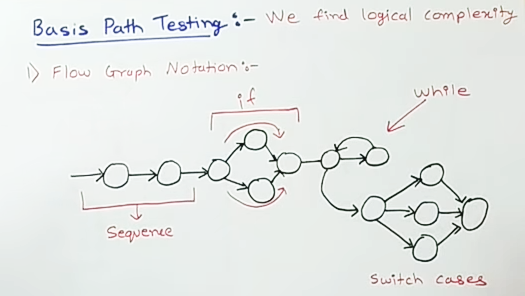 Basis Path Testing:- We find logical complexity
1) Flow Graph Notation:-
if
while
Sequence
Switch cases